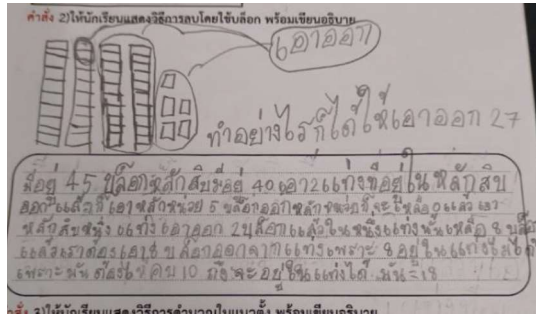 คำสั่ง 2)ให้นักเรียนแสดงวิธีการลบโดยใช้บล็อก พร้อมเขียนอธิบาย
เอาออก
ทำอย่างไรก็ได้ให้เอาออก 27
มีอยู่ 45 บล็อกหลักสิบมีอยู่ 40 เอา 2 แท่งที่อยู่ในหลักสิบ
ออกไปแล้วก็เอาหลักหน่วย 5 บล็อกออกหลักหน่วยก็จะเหลือ 0 แล้วเอา
หลักสิบหนึ่งแท่งเอาออก 2 บล็อกแล้วในหนึ่งแท่งนั้นเหลือ 8 บล็อ
แล้วเราต้องเอา 8 บล็อกออกจากแท่งเพราะ 8 อยู่ในแท่งไม่ได้
เพราะมันต้องให้ครบ 10 ถึงจะอยู่ในแท่งได้ มัน=18
คำสั่ง 3)ให้นักเรียนแสดงวิธีการคำนวณในแนวตั้ง พร้อมเขียนอธิบาย